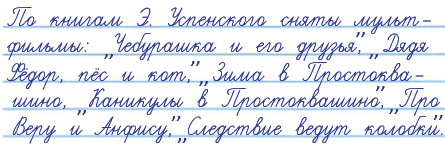 По книгам Э. Успенского сняты мульт-
фильмы: „Чебурашка и его друзья”, „Дядя
Фёдор, пёс и кот”, „Зима в Простоква-
шино”, „Каникулы в Простоквашино”, „Про
Веру и Анфису”, „Следствие ведут колобки”.